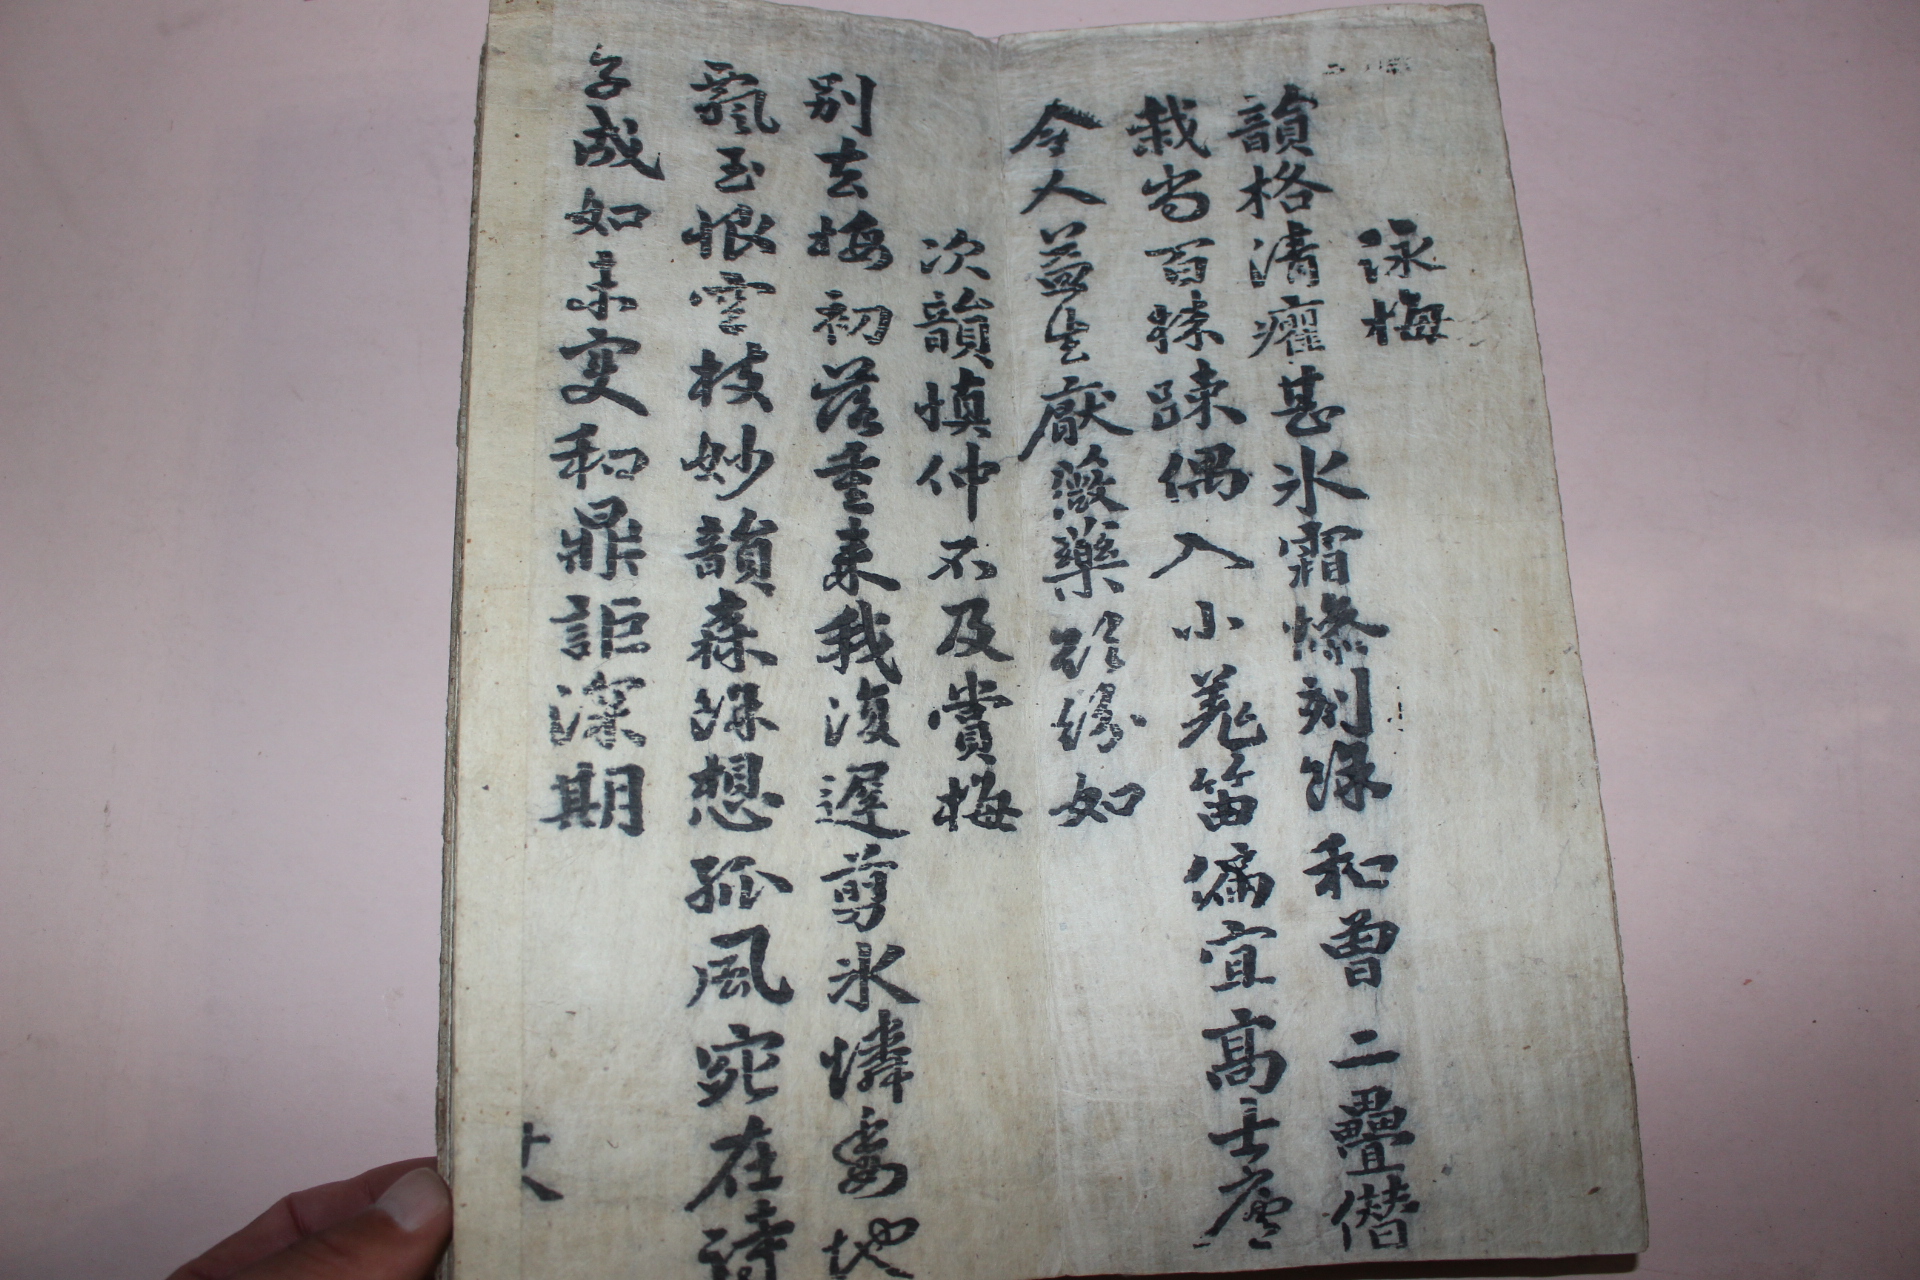 詠梅
韻格清癯甚氷霜慘刻餘和曾二疊僭
栽尚百株踈偶入小羌笛偏宜高士廬
令人益生厭薇藥紛如
次韻慎仲不及賞梅
別去梅初落重來我復遲剪氷憐委地
飄玉恨空枝妙韻森餘想孤風宛在詩
子成如未變和鼎詎深期